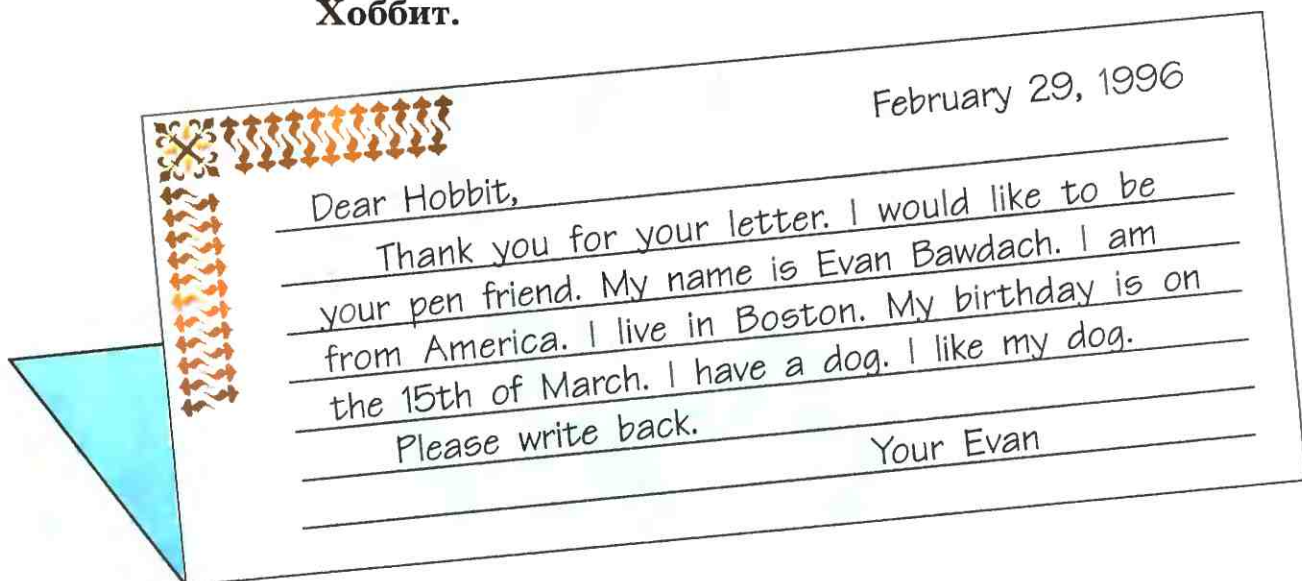 Хоббит.
February 29, 1996
Dear Hobbit,
Thank you for your letter. I would like to be
your pen friend. My name is Evan Bawdach. I am
from America. I live in Boston. My birthday is on
the 15th of March. I have a dog. I like my dog.
Please write back.
Your Evan